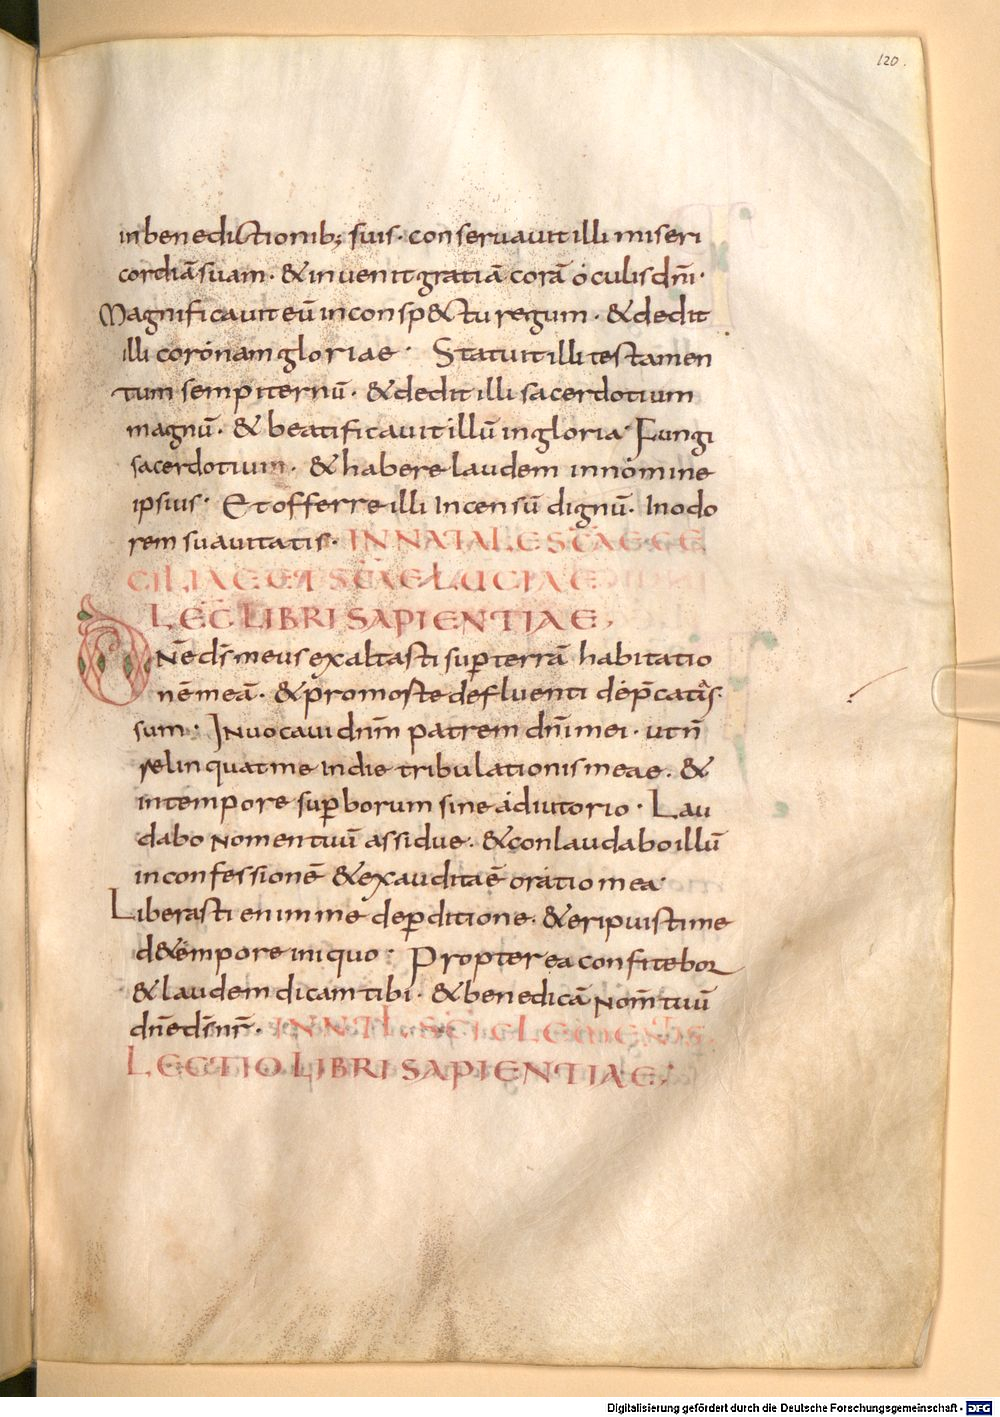 120.
in benedictionib; suis· conservavit illi miseri
cordiā suam· & invenit gratiā corā oculis dn̄i·
Magnificavit eū in consp&ctu regum· & dedit
illi coronam gloriae· Statuit illi testamen
tum sempiternū· & dedit illi sacerdotium
magnū· & beatificavit illū in gloria· Fungi
sacerdotium· & habere laudem in nomine
ipsius· Et offerre illi incensū dignū· In odo
rem suavitatis· IN NATALE SC̄AE CE
CILIAE ET SC̄AE LUCIAE
LEC̄ LIBRI SAPIENTIAE,
Dn̄e ds̄ meus exaltasti sup̄ terrā habitatio
nē meā· & p̄ morte defluenti dep̄catus
sum· Invocavi dn̄m patrem dn̄i mei· ut n̄
relinquat me in die tribulationis meae· &
in tempore sup̄borum sine adiutorio· Lau
dabo nomen tuū assidue· & conlaudabo illū
in confessionē & exaudita ē oratio mea·
Liberasti enim me de p̄ditione· & eripuisti me
de tempore iniquo· Propterea confitebor
& laudem dicam tibi· & benedicā nom̄ tuū
dn̄e ds̄ nr̄· IN NT̄L SC̄I CLEMENTIS
LECTIO LIBRI SAPIENTIAE,
Digitalisierung gefördert durch die Deutsche Forschungsgemeinschaft - DFG